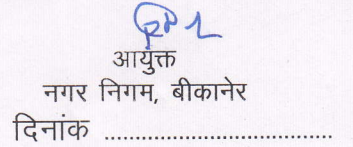 आयुक्त
नगर निगम, बीकानेर
दिनांक ....................................